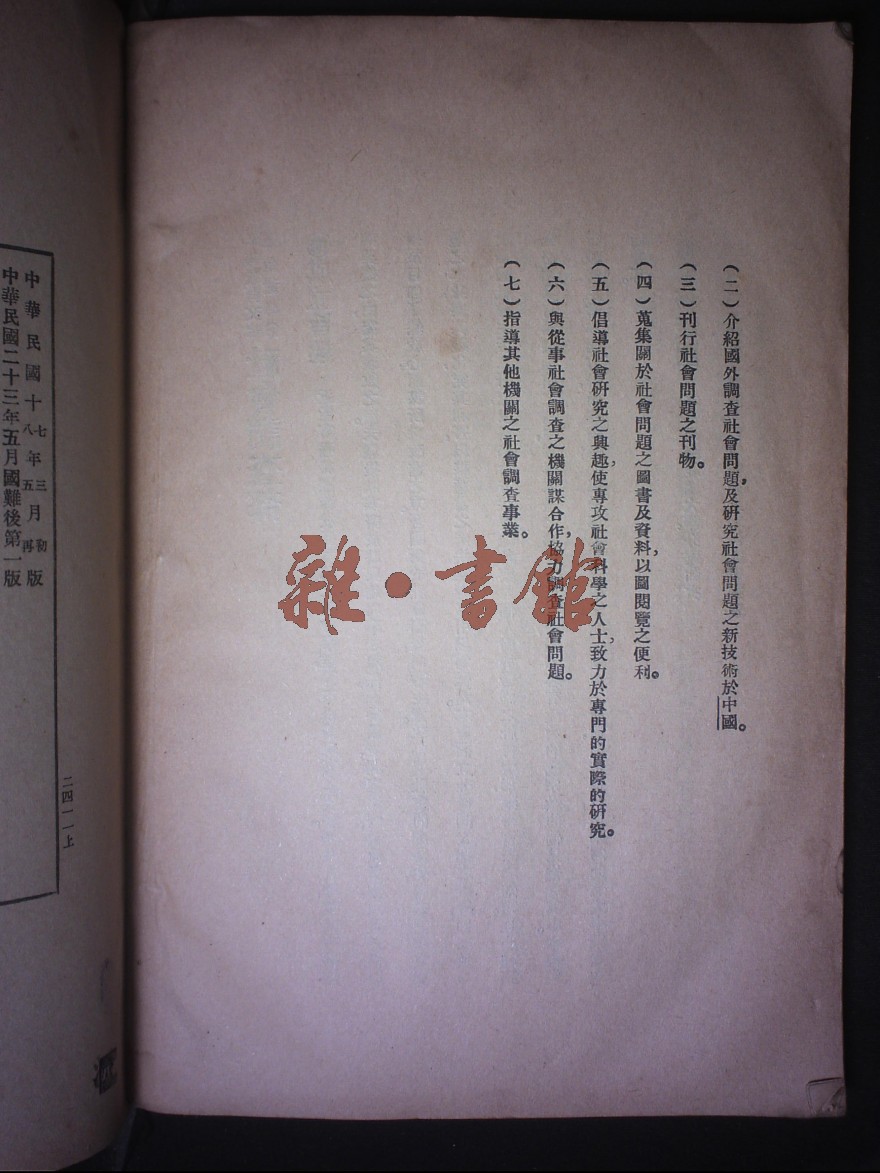 (二)介紹國外調查社會問題,及研究社會問題之新技術於中國。
(三)刊行社會問題之刊物。
(四)蒐集關於社會問題之圖書及資料,以圖閱覽之便利。
(五)倡導社會研究之興趣,使專攻社會科學之人士,致力於專門的實際的研究。
(六)與從事社會調查之機關謀合作,協力調查社會問題。
(七)指導其他機關之社會調查事業。
雜·書館
二四一一上
中華民國十七年三月初版
八五再
中華民國二十三年五月國難後第一版